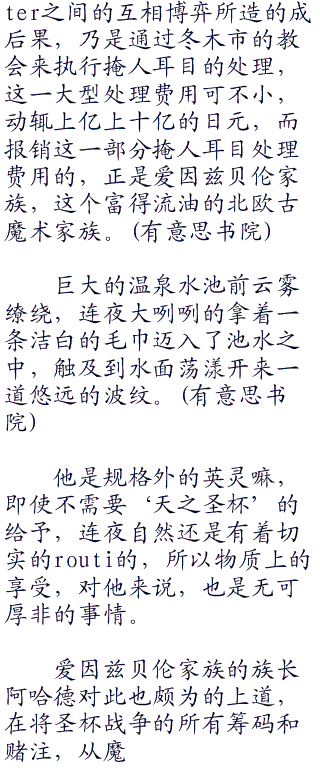 ter之间的互相博弈所造的成
后果，乃是通过冬木市的教
会来执行掩人耳目的处理，
这一大型处理费用可不小，
动辄上亿上十亿的日元，而
报销这一部分掩人耳目处理
费用的，正是爱因兹贝伦家
族，这个富得流油的北欧古
魔术家族。(有意思书院)
巨大的温泉水池前云雾
缭绕，连夜大咧咧的拿着一
条洁白的毛巾迈入了池水之
中，触及到水面荡漾开来一
道悠远的波纹。(有意思书
院)
他是规格外的英灵嘛，
即使不需要‘天之圣杯’的
给予，连夜自然还是有着切
实的routi的，所以物质上的
享受，对他来说，也是无可
厚非的事情。
爱因兹贝伦家族的族长
阿哈德对此也颇为的上道，
在将圣杯战争的所有筹码和
赌注，从魔